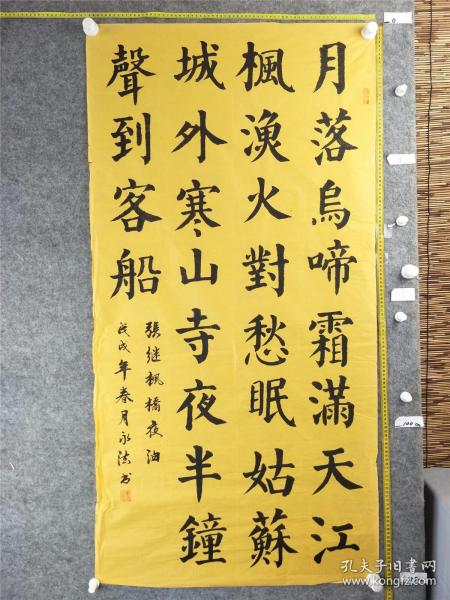 月落烏啼霜滿天江
楓漁火對愁眠姑蘇
城外寒山寺夜半鐘
聲到客船
張继楓橋夜泊
戊戌年春月永法书
孔夫子旧书网
www.kongfz.com